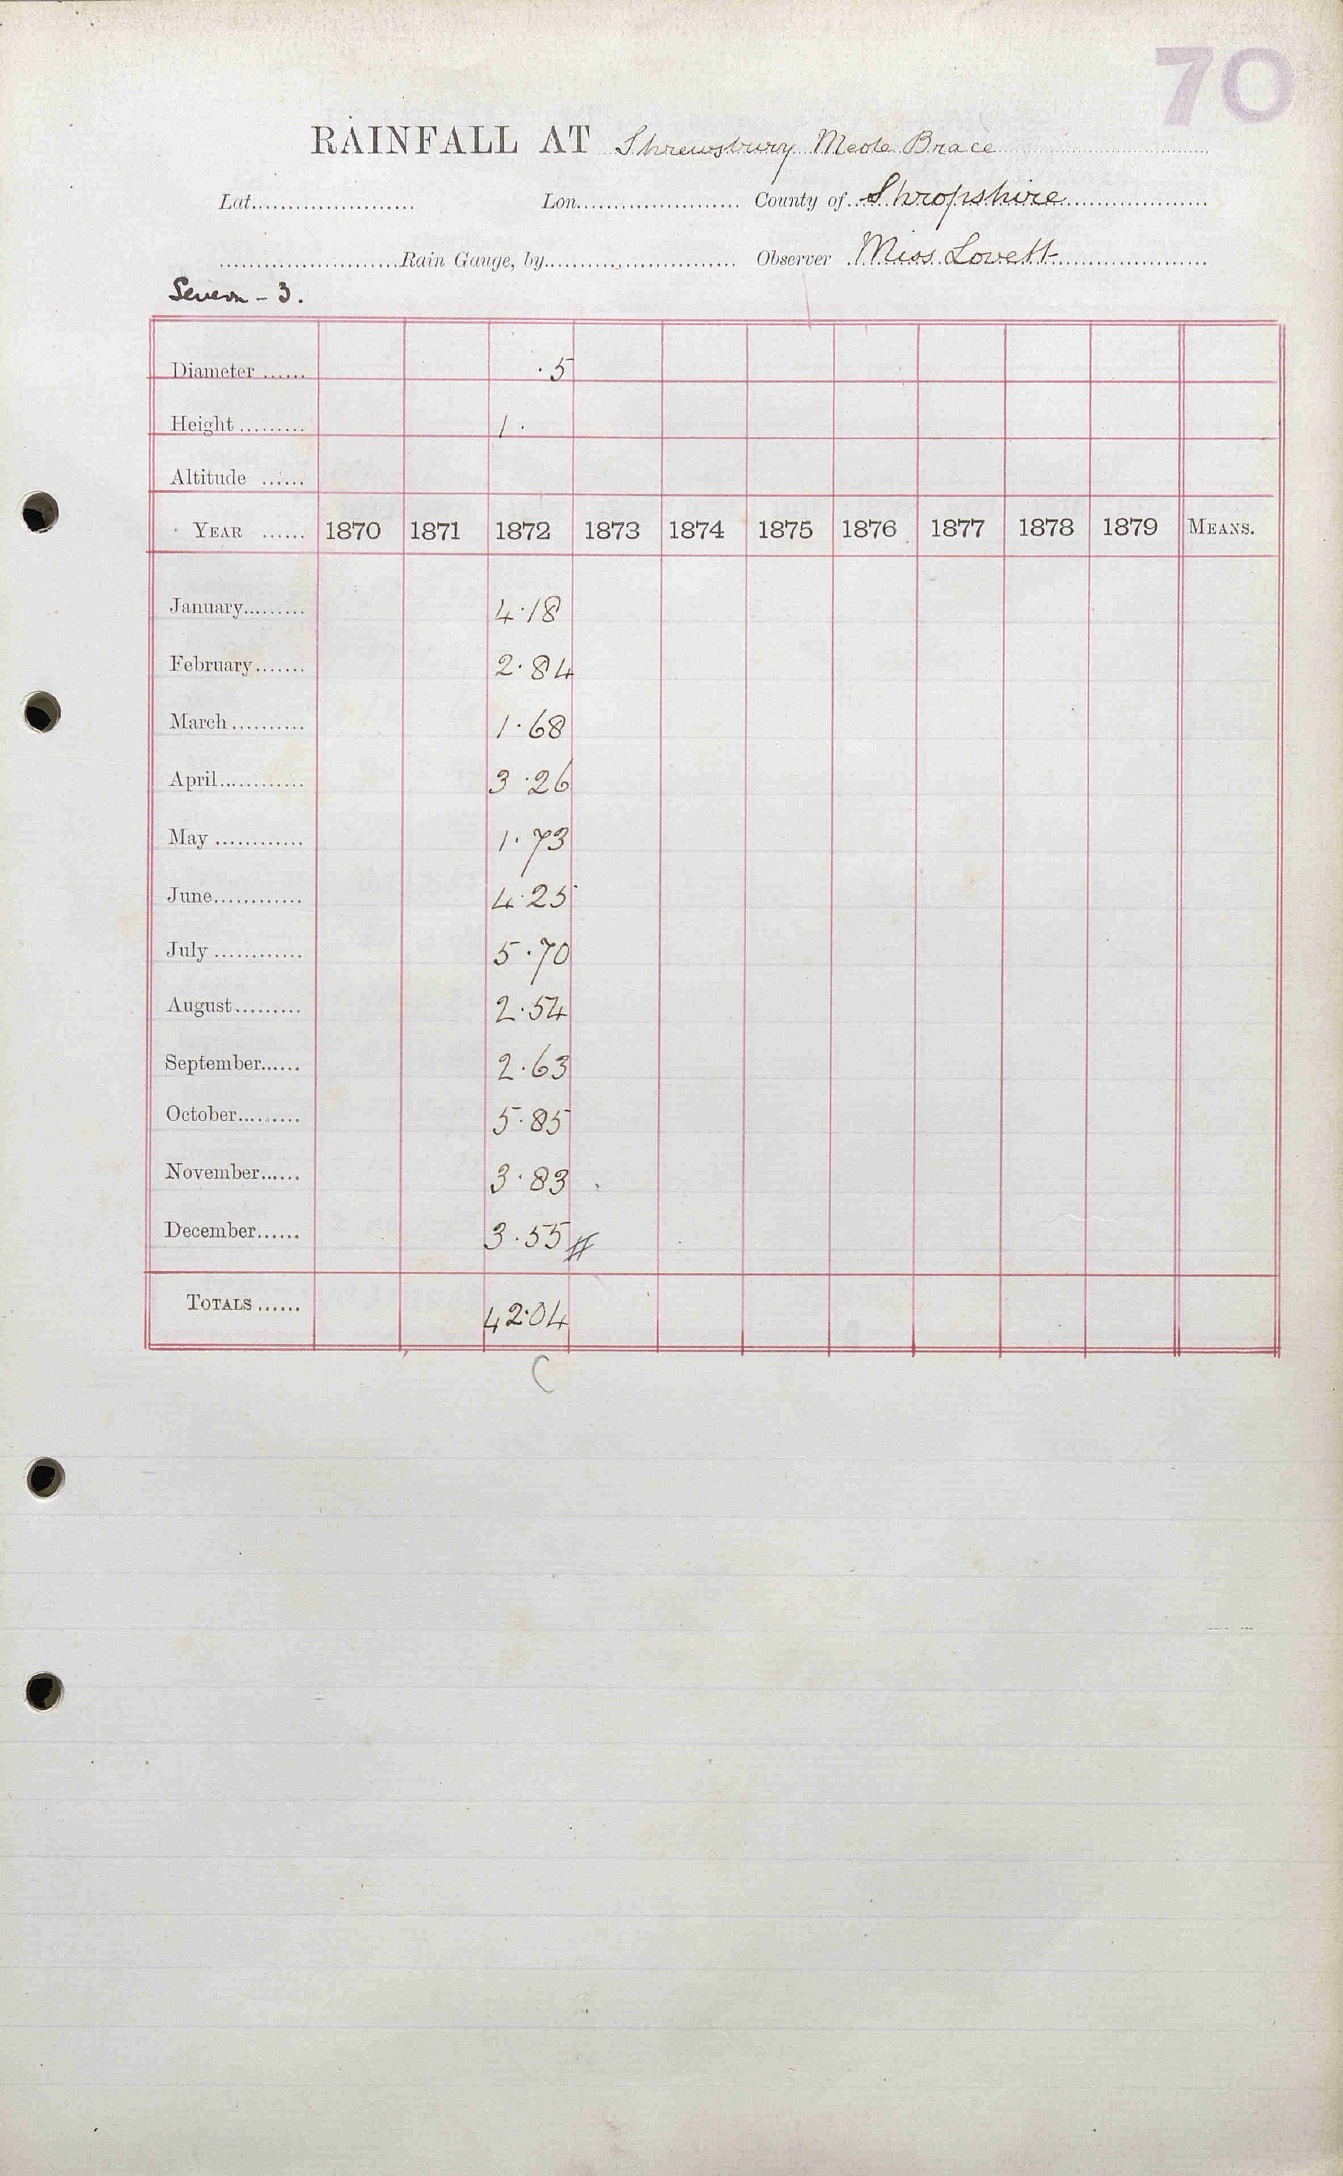 70
RAINFALL AT Shrewsbury Meole Brace
Lat...................... Lon...................... County of Shropshire
........................Rain Gauge, by........................... Observer Miss Lovett
Severn - 3.
Diameter ...... ·5
Height ......... 1 ·
Altitude ......
YEAR ...... 1870 1871 1872 1873 1874 1875 1876 1877 1878 1879 MEANS.
January......... 4·18
February....... 2·84
March.......... 1·68
April............ 3·26
May ............ 1·73
June............ 4·25
July ............ 5·70
August......... 2·54
September...... 2·63
October......... 5·85
November...... 3·83
December...... 3·55
TOTALS ...... 42·04
C